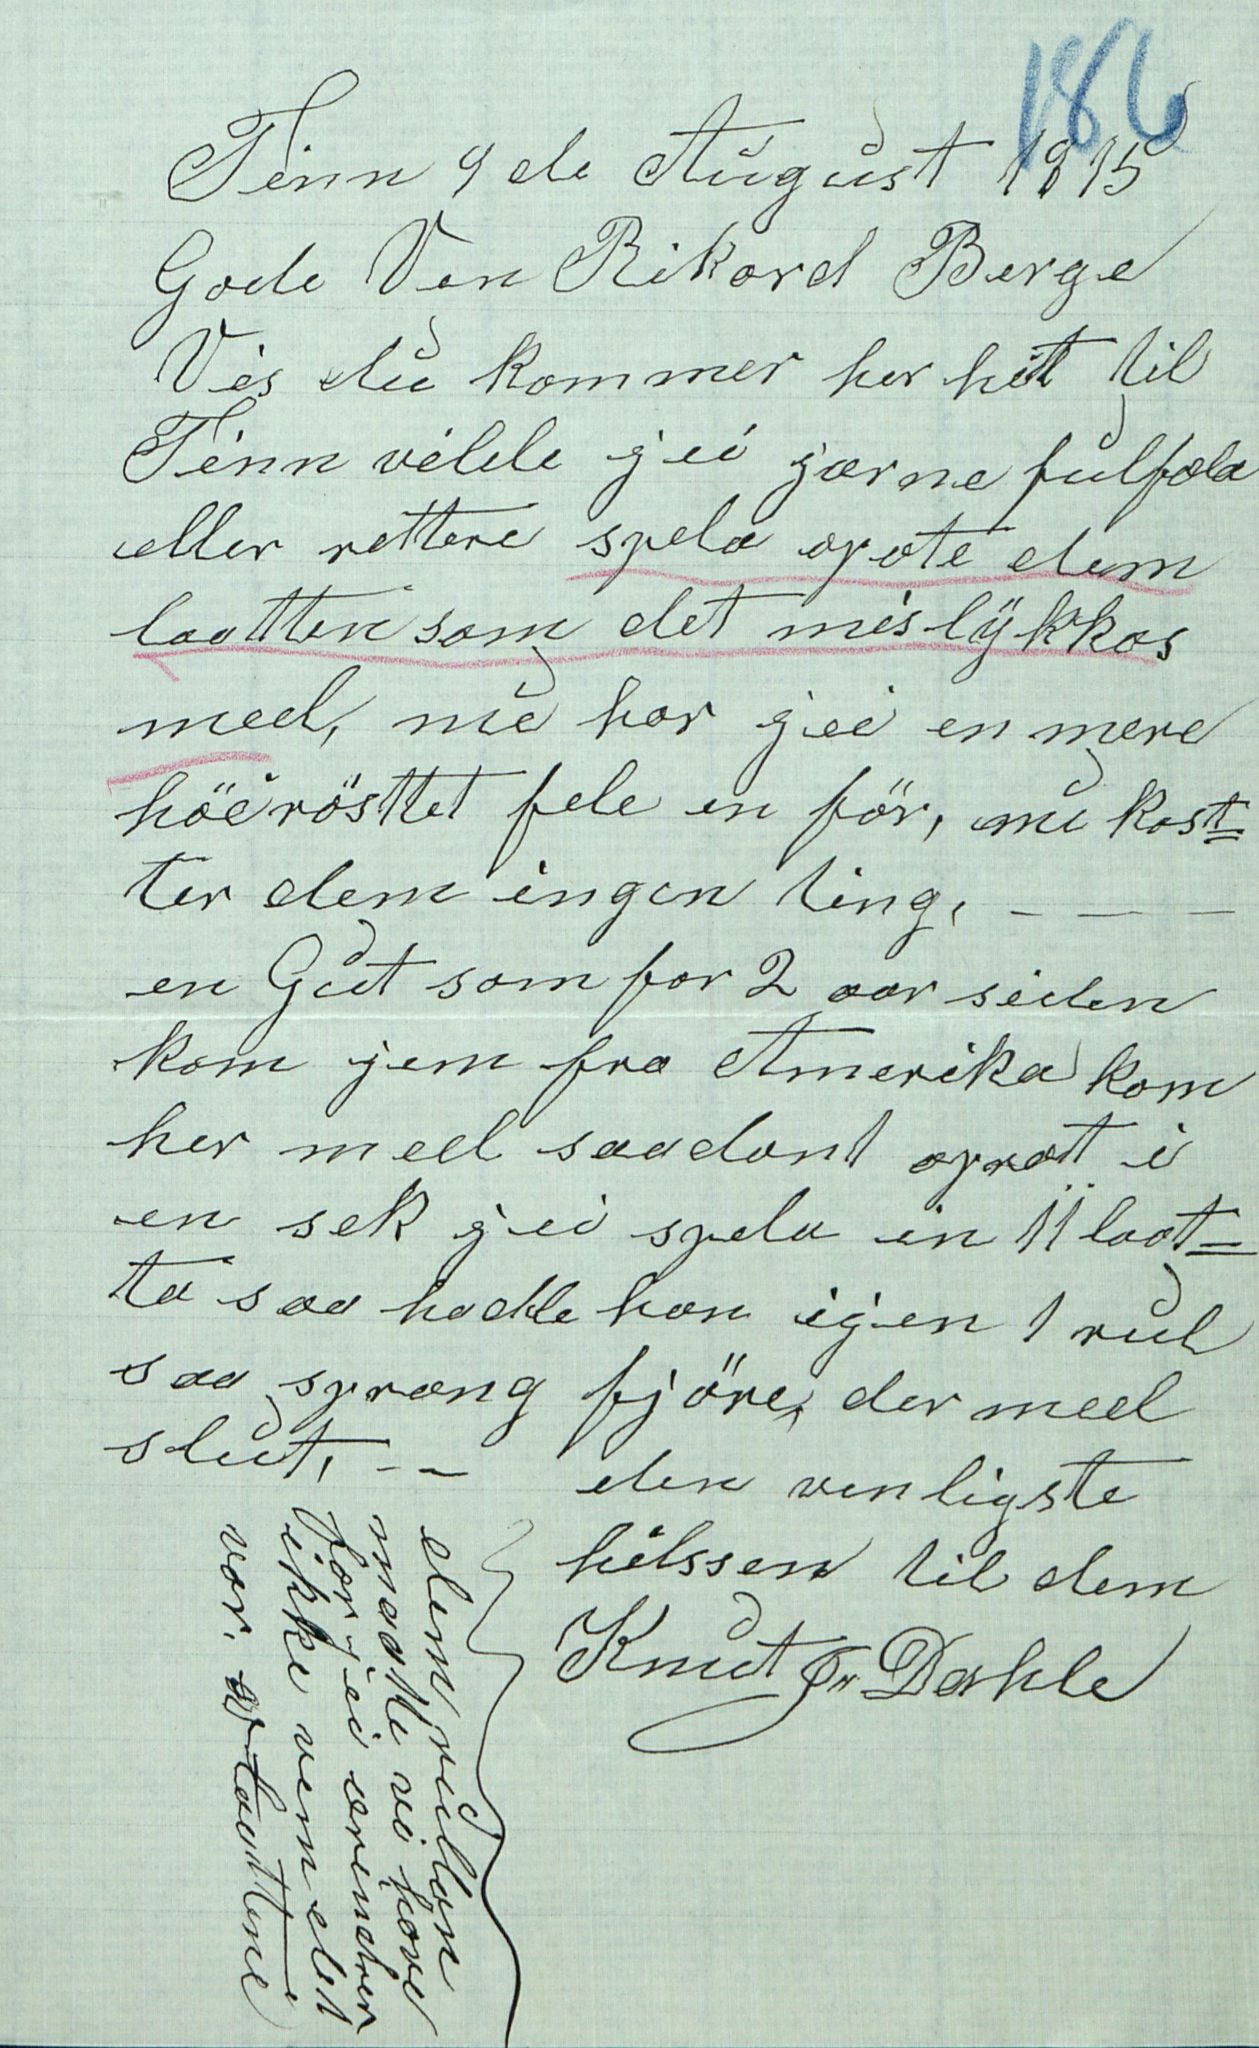 186
Tinn 9 de August 1915
Gode Ven Rikard Berge
Vis du kommer her hit til
Tinn vilde jei gjærne fulføla
eller rettere spela opote dem
laatten som det mislÿkkas
med, nu har jei en mere
höiröstet fele en för, nu kost=
ter dem ingen ting, — — —
en Gut som for 2 aar siden
kom jem fra Amerika kom
her med saadant aprat i
en sek jei spela in 11 laat=
ta saa hadde han igjen 1 rul
saa sprang fjöre, der med
slut, — —
den venligste
hilssen til dem
Knut Jr Dahle
dem rullan
maatte vi have
for jei erindrer
ikke vem det
var. af laattene